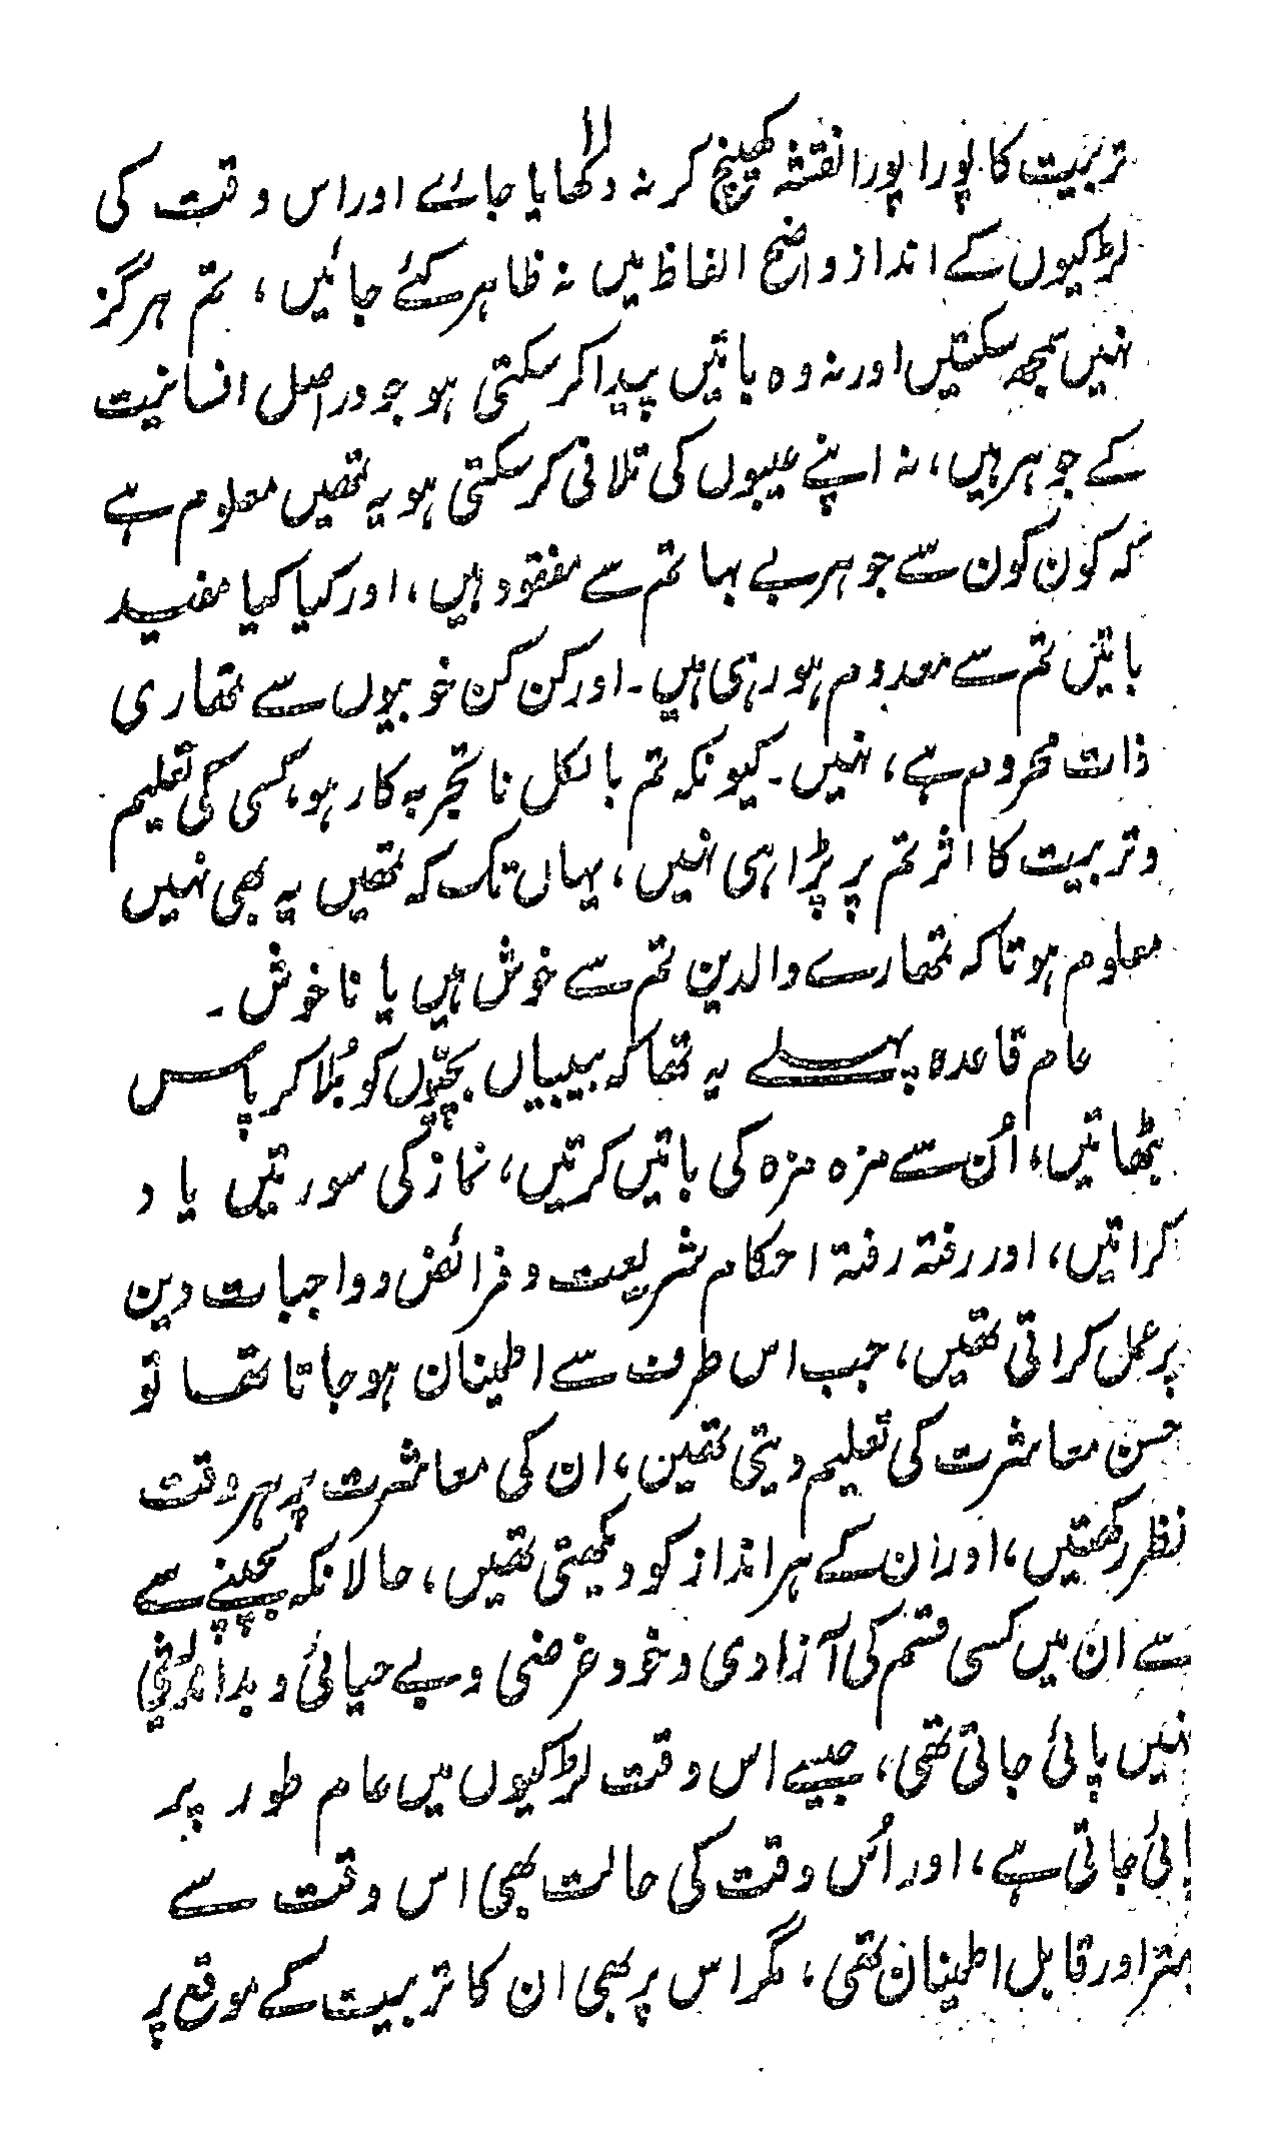 ۱۱
تربیت کا پورا پورا نقشہ کھینچ کر نہ دکھایا جائے اور اس وقت کی
لڑکیوں کے انداز واضح الفاظ میں نہ ظاہر کئے جائیں، تم ہرگز
نہیں سمجھ سکتیں اور نہ وہ باتیں پیدا کر سکتی ہو جو دراصل انسانیت
کے جوہر ہیں، نہ اپنے عیبوں کی تلافی کر سکتی ہو یہ تمھیں معلوم ہے
کہ کون کون سے جوہر بے بہا تم سے مفقود ہیں، اور کیا کیا مفید
باتیں تم سے معدوم ہو رہی ہیں۔ اور کن کن خوبیوں سے تمھاری
ذات محروم ہے، نہیں۔ کیونکہ تم بالکل ناتجربہ کار ہو، کسی کی تعلیم
و تربیت کا اثر تم پر پڑا ہی نہیں، یہاں تک کہ تمھیں یہ بھی نہیں
معلوم ہوتا کہ تمھارے والدین تم سے خوش ہیں یا ناخوش۔
عام قاعدہ پہلے یہ تھا کہ بیبیاں بچّوں کو بُلا کر پاس
بٹھاتیں، اُن سے مزہ مزہ کی باتیں کرتیں، نماز کی سورتیں یاد
کراتیں، اور رفتہ رفتہ احکام شریعت و فرائض و واجبات دین
پر عمل کراتی تھیں، جب اس طرف سے اطمینان ہو جاتا تھا تو
حسن معاشرت کی تعلیم دیتی تھین، ان کی معاشرت پر ہر وقت
نظر رکھتیں، اور ان کے ہر انداز کو دیکھتی تھیں، حالانکہ بچپنے سے
سے ان میں کسی قسم کی آزادی و خود غرضی و بے حیائی و بداندیشی
نہیں پائی جاتی تھی، جیسے اس وقت لڑکیوں میں عام طور پر
پائی جاتی ہے، اور اُس وقت کی حالت بھی اس وقت سے
بہتر اور قابل اطمینان تھی، مگر اس پر بھی ان کا تربیت کے موقع پر